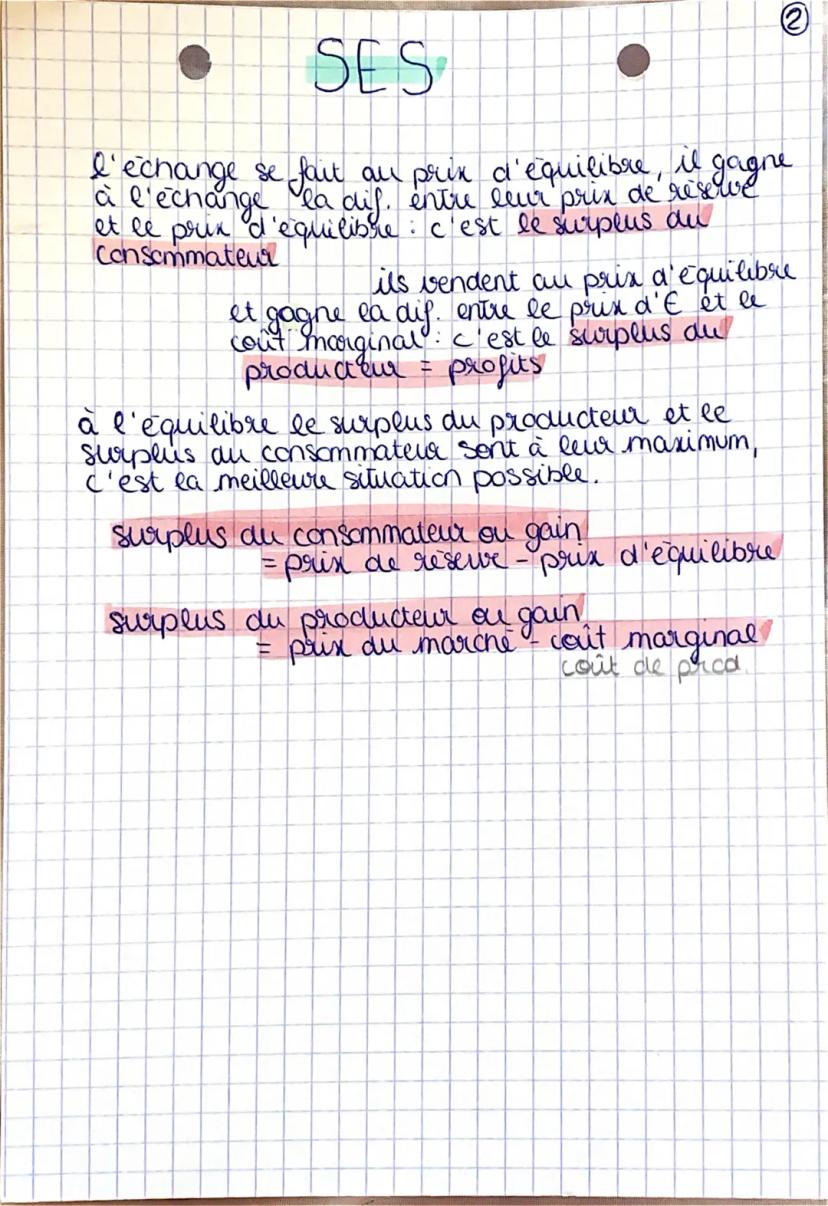 ②
SES
l'échange se fait au prix d'équilibre, il gagne
à l'échange la dif. entre leur prix de réserve
et le prix d'équilibre : c'est le surplus du
consommateur
ils vendent au prix d'équilibre
et gagne la dif. entre le prix d'E et le
coût marginal : c'est le surplus du
producteur = profits
à l'équilibre le surplus du producteur et le
surplus du consommateur sont à leur maximum,
c'est la meilleure situation possible.
surplus du consommateur ou gain
= prix de réserve - prix d'équilibre
surplus du producteur ou gain
= prix du marché - coût marginal
coût de prod.